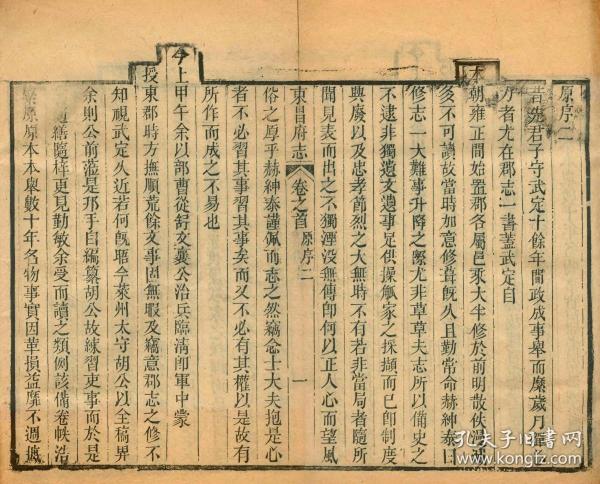 原序二
昔先君子守武定十餘年間政成事舉而縻歲月
方者尤在郡志一書蓋武定自
本朝雍正間始置郡各屬邑乘大半修於前明散佚
多不可讀故當時加意修葺旣久且勤常命赫紳泰曰
修志一大難事升降之際尤非草草夫志所以備史之
不逮非獨遺文遺事足供操觚家之採擷而已卽制度
興廢以及忠孝節烈之大無時不有若非當局者隨所
聞見表而出之不獨湮没無傳卽何以正人心而望風
東昌府志 卷之首 原序二 一
俗之原乎赫紳泰謹佩而志之然竊念士大夫抱是心
者不必習其事習其事矣而又不必有其權以是故有
所作而成之不易也
今上甲午余以部曹從舒文襄公治兵臨淸卽軍中蒙
授東郡時方撫順荒餘文事固無暇及竊意郡志之修不
知視武定久近若何旣晤今萊州太守胡公以全稿界
繕隨梓更見勤敏余受而讀之類例該備卷帙浩
余則公前涖是邦手自編纂胡公故練習吏事而於是
繁原原本本舉數十年名物事實因革損益靡不週
孔夫子旧书网
www.kongfz.com